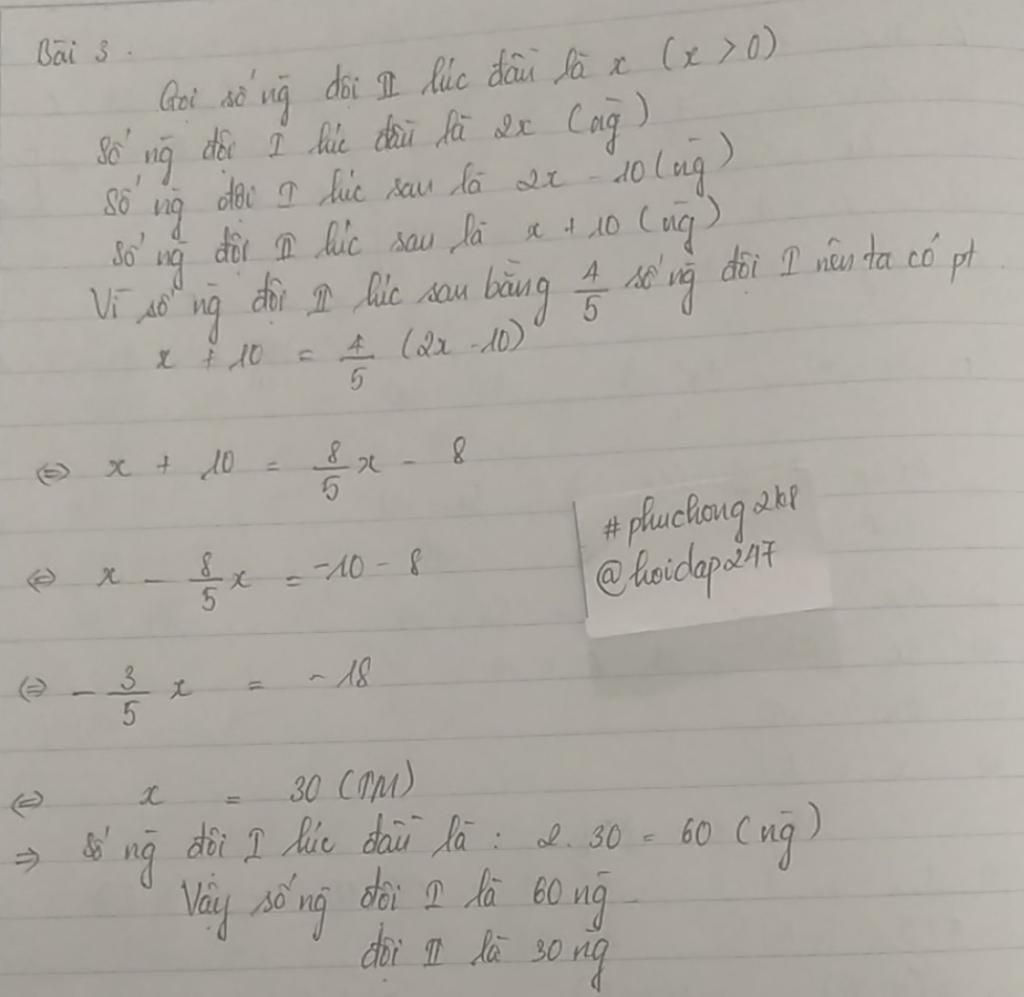 Bài 3.
Gọi số ng̃ đội II lúc đầu là x (x > 0)
Số ng̃ đội I lúc đầu là 2x (ng̃)
Số ng̃ đội I lúc sau là 2x - 10 (ng̃)
Số ng̃ đội II lúc sau là x + 10 (ng̃)
Vì số ng̃ đội II lúc sau bằng 4/5 số ng̃ đội I nên ta có pt
x + 10 = 4/5 (2x - 10)
⇔ x + 10 = 8/5 x - 8
⇔ x - 8/5 x = -10 - 8
#phuchong2k8
@hoidap247
⇔ - 3/5 x = - 18
⇔ x = 30 (TM)
⇒ Số ng̃ đội I lúc đầu là : 2. 30 = 60 (ng̃)
Vậy số ng̃ đội I là 60 ng̃
đội II là 30 ng̃